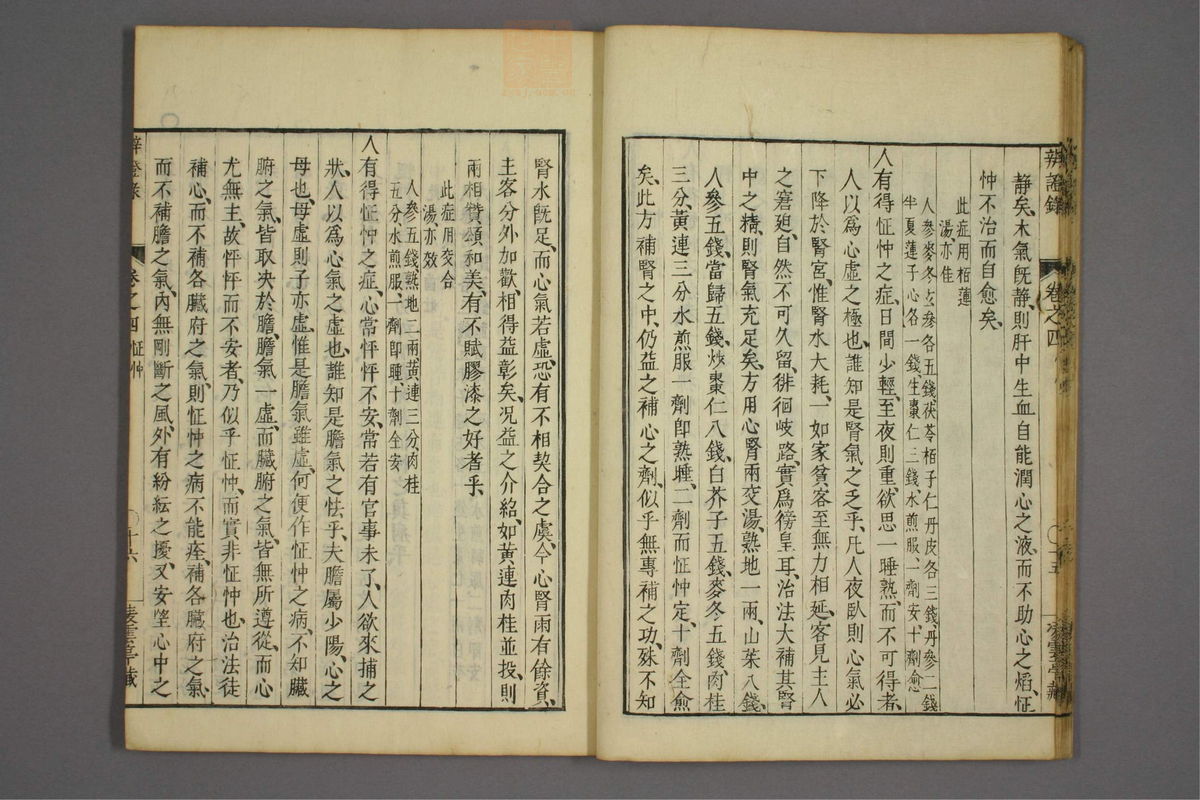 辨證錄
卷之四
十五
靜矣、木氣旣靜、則肝中生血、自能潤心之液、而不助心之焰、怔
忡不治而自愈矣、
此症用栢蓮
湯、亦佳
人參麥冬玄參各五錢、茯苓栢子仁丹皮各三錢、丹參二錢
半夏蓮子心各一錢、生棗仁三錢、水煎服一劑安、十劑愈
人有得怔忡之症、日間少輕、至夜則重、欲思一睡熟、而不可得者、
人以爲心虛之極也、誰知是腎氣之乏乎、凡人夜臥則心氣必
下降於腎宮、惟腎水大耗、一如家貧、客至無力相延、客見主人
之窘廹、自然不可久留、徘徊岐路、實爲徬皇耳、治法大補其腎
中之精、則腎氣充足矣、方用心腎兩交湯、熟地一兩、山茱八錢、
人參五錢、當歸五錢、炒棗仁八錢、白芥子五錢、麥冬五錢、肉桂
三分、黃連三分、水煎服一劑卽熟睡、二劑而怔忡定、十劑全愈
矣、此方補腎之中、仍益之補心之劑、似乎無專補之功、殊不知
腎水旣足、而心氣若虛、恐有不相契合之虞、今心腎兩有餘資、
主客分外加歡、相得益彰矣、况益之介紹、如黃連肉桂並投、則
兩相贊頌和美、有不賦膠漆之好者乎、
此症用交合
湯、亦效
人參五錢、熟地二兩、黃連三分、肉桂
五分、水煎服、一劑卽睡、十劑全安
人有得怔忡之症、心常怦怦不安、常若有官事未了、人欲來捕之
狀、人以爲心氣之虛也、誰知是膽氣之怯乎、夫膽屬少陽、心之
母也、母虛則子亦虛、惟是膽氣雖虛、何便作怔忡之病、不知臟
腑之氣、皆取决於膽、膽氣一虛、而臟腑之氣、皆無所遵從、而心
尤無主、故怦怦而不安者、乃似乎怔忡、而實非怔忡也、治法徒
補心、而不補各臟府之氣、則怔忡之病不能痊、補各臟府之氣、
而不補膽之氣、內無剛斷之風、外有紛紜之擾、又安望心中之
卷之四 怔忡
十六